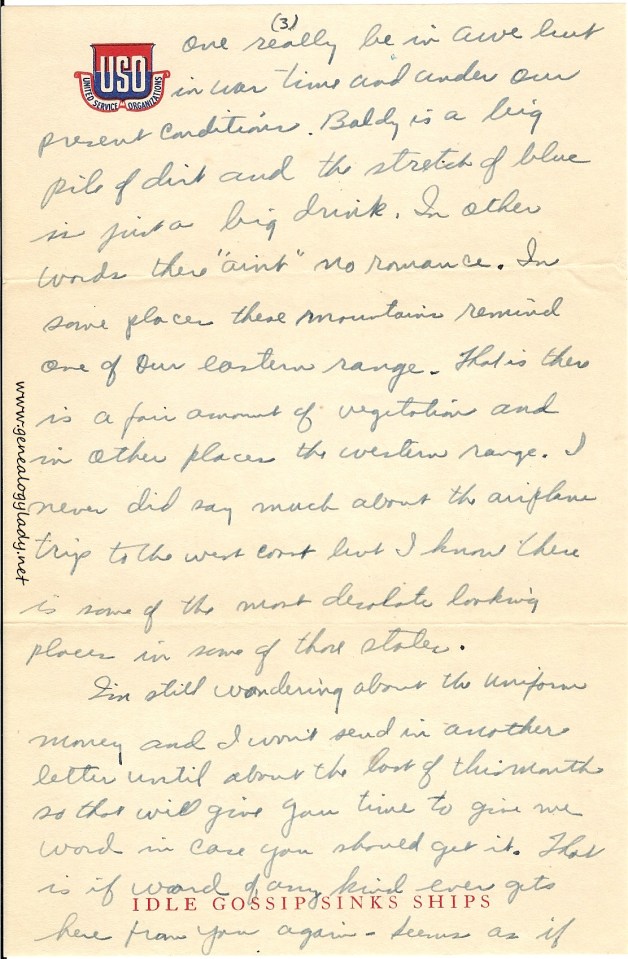 (3)
one really be in awe but
USO
UNITED SERVICE ORGANIZATIONS
in war time and under our
present conditions. Baldy is a big
pile of dirt and the stretch of blue
is just a big drink. In other
words there "aint" no romance. In
some places these mountains remind
one of our eastern range. That is there
is a fair amount of vegetation and
in other places the western range. I
never did say much about the airplane
trip to the west coast but I know there
is some of the most desolate looking
places in some of those states.
I'm still wondering about the uniform
money and I won't send in another
letter until about the last of this month
so that will give you time to give me
word in case you should get it. That
is if word of any kind ever gets
IDLE GOSSIP SINKS SHIPS
here from you again - seems as if
www.genealogylady.net